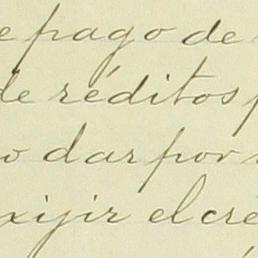 e pago de
de réditos p
o dar por
xijir el cré